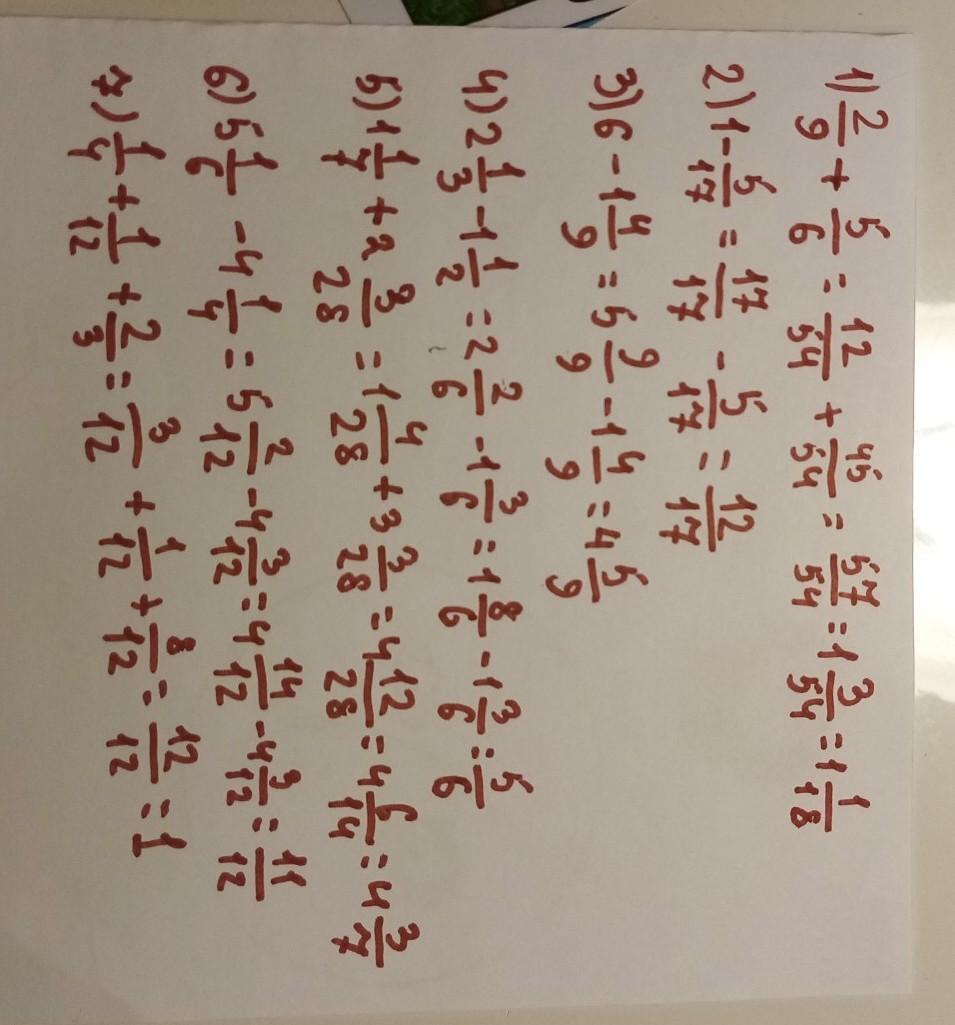 1) 2/9 + 5/6 = 12/54 + 45/54 = 57/54 = 1 3/54 = 1 1/18
2) 1 - 5/17 = 17/17 - 5/17 = 12/17
3) 6 - 1 4/9 = 5 9/9 - 1 4/9 = 4 5/9
4) 2 1/3 - 1 1/2 = 2 2/6 - 1 3/6 = 1 8/6 - 1 3/6 = 5/6
5) 1 1/7 + 2 3/28 = 1 4/28 + 3 3/28 = 4 12/28 = 4 6/14 = 4 3/7
6) 5 1/6 - 4 1/4 = 5 2/12 - 4 3/12 = 4 14/12 - 4 3/12 = 11/12
7) 1/4 + 1/12 + 2/3 = 3/12 + 1/12 + 8/12 = 12/12 = 1